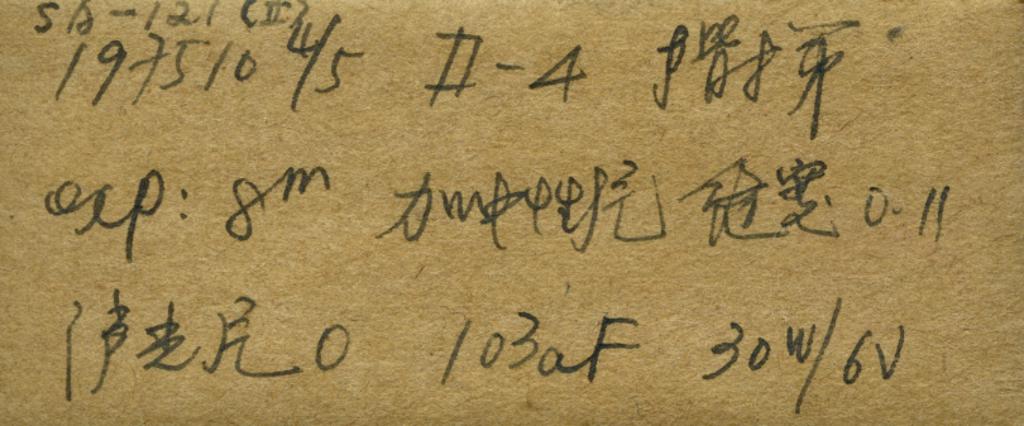 SB-121 (II)
1975 10 4/5 II-4
exp: 8m 加中性片 缝宽 0.11
光尺 0 103aF 30W/6V